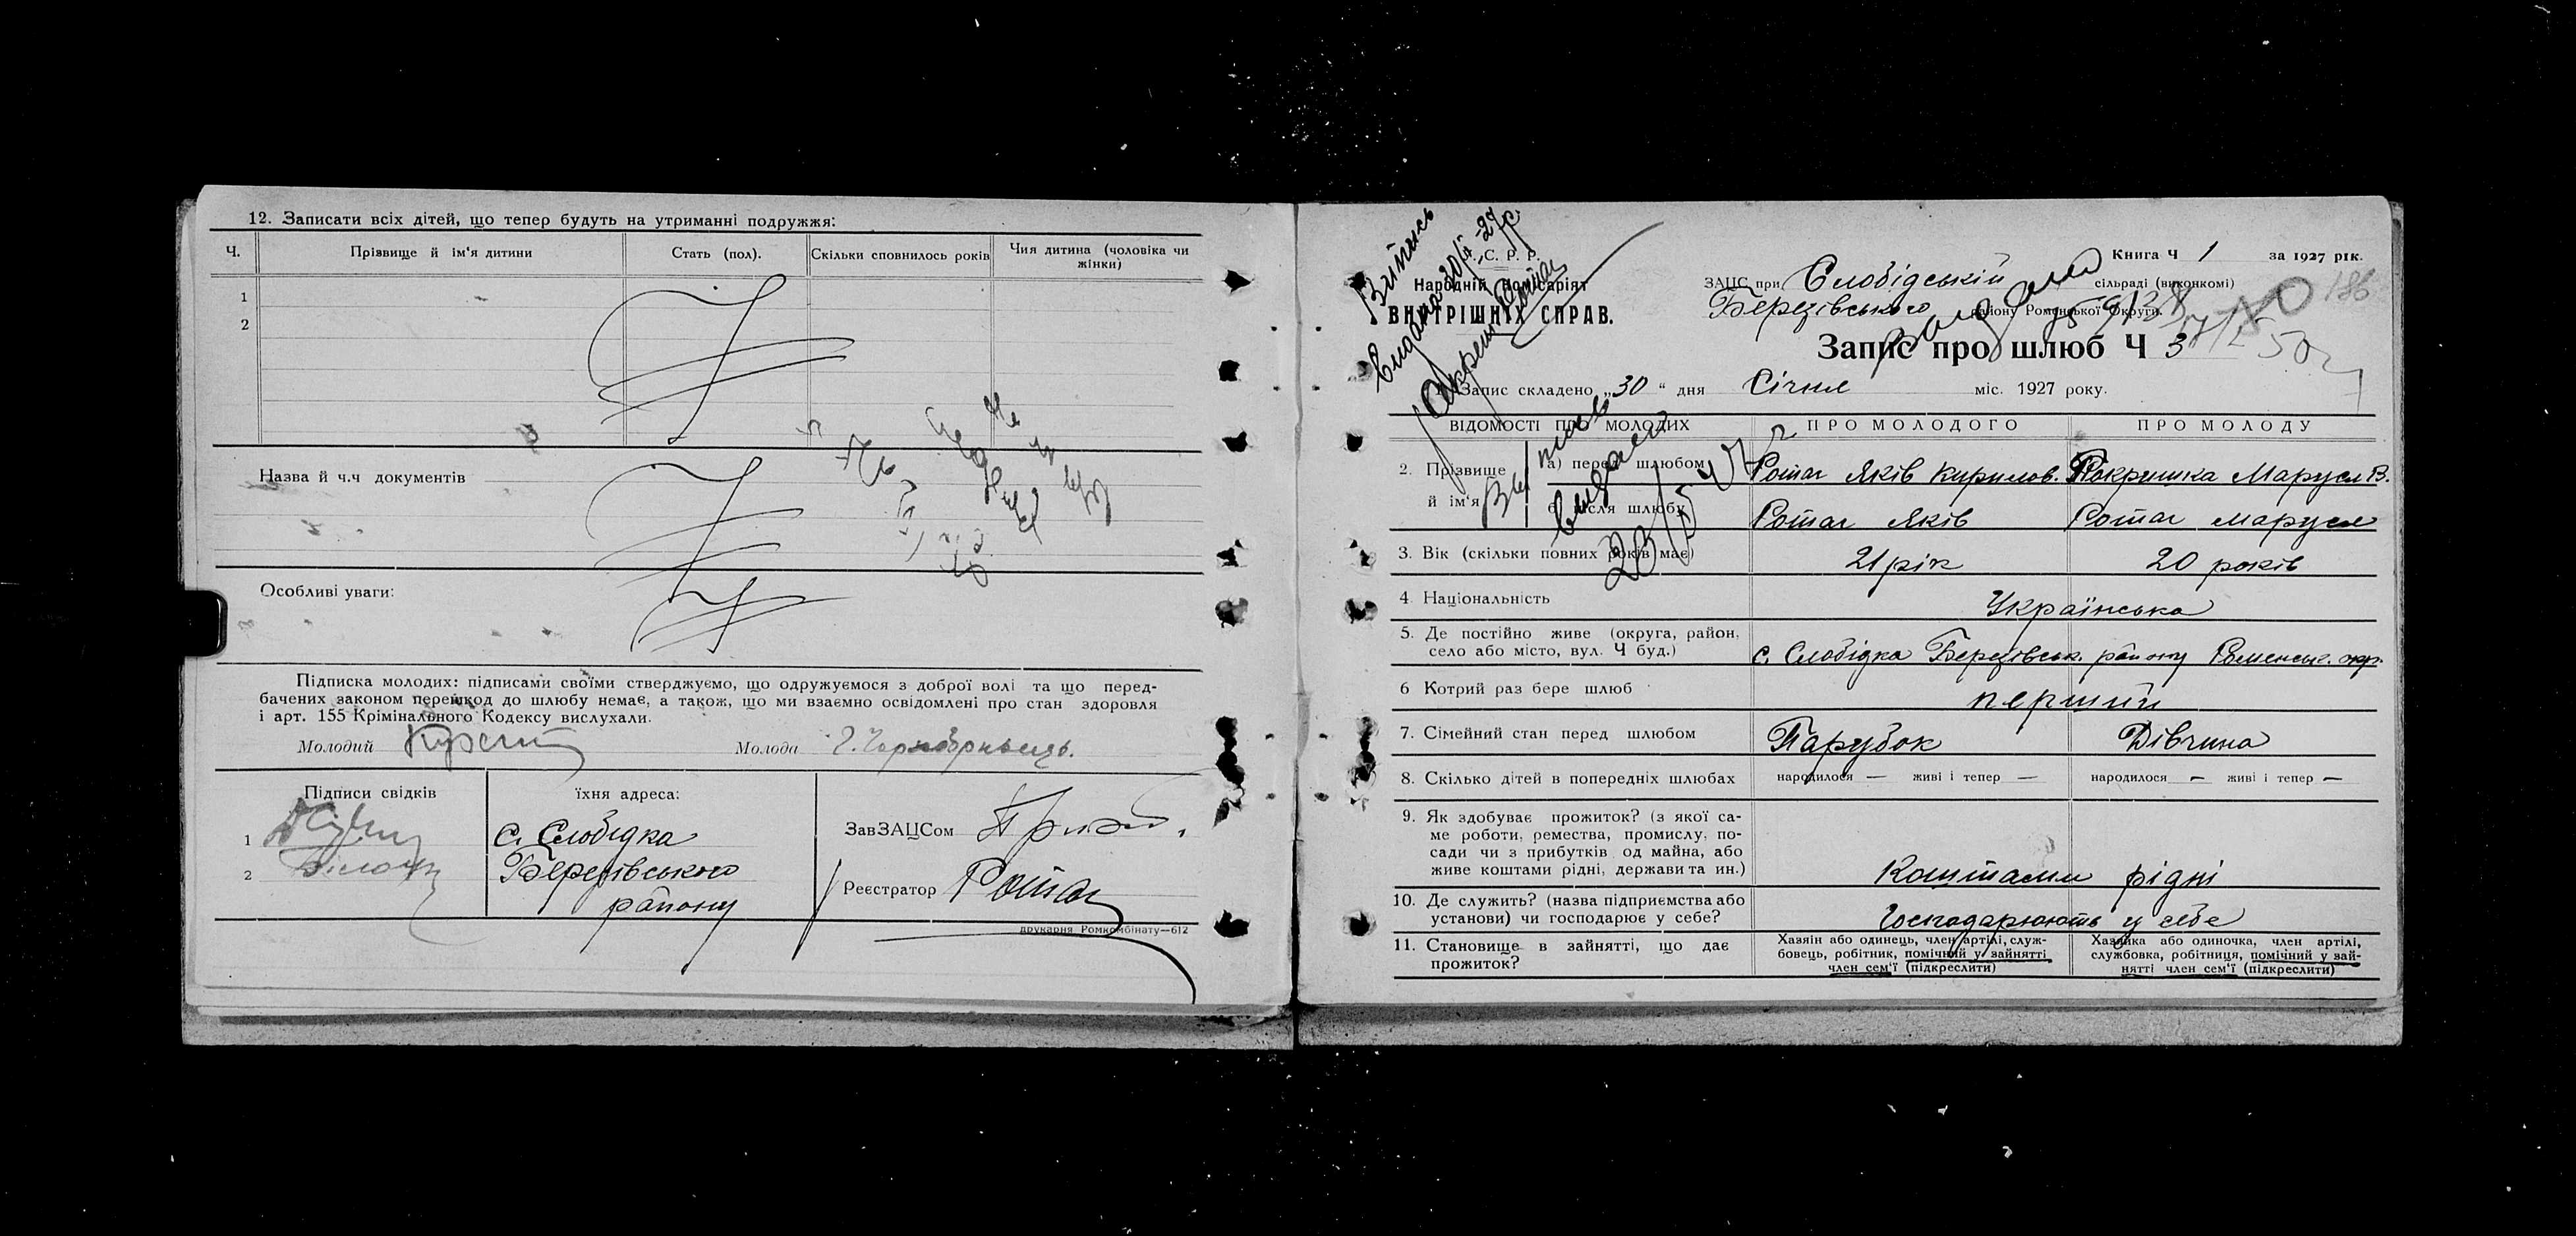 12. Записати всіх дітей, що тепер будуть на утриманні подружжя:
Ч. Прізвище й ім'я дитини Стать (пол). Скільки сповнилось років Чия дитина (чоловіка чи жінки)
1
2
Назва й ч.ч документів
Особливі уваги:
Підписка молодих: підписами своїми стверджуємо, що одружуємося з доброї волі та що перед-
бачених законом перешкод до шлюбу немає, а також, що ми взаємно освідомлені про стан здоровля
і арт. 155 Крімінального Кодексу вислухали.
Молодий Молода
Підписи свідків їхня адреса:
1 с. Слобідка
2 Березівського
району
ЗавЗАЦСом
Реєстратор Ротач
друкарня Ромкомбінату—612
Випись
видана
С. Р. Р.
Народній Комісаріят
ВНУТРІШНІХ СПРАВ.
Книга Ч 1 за 1927 рік.
ЗАЦС при Слобідській сільраді (виконкомі)
Березівського району Роменської Округи.
186
Запис про шлюб Ч 3
1. Запис складено „30" дня Січня міс. 1927 року.
ВІДОМОСТІ ПРО МОЛОДИХ ПРО МОЛОДОГО ПРО МОЛОДУ
2. Прізвище й ім'я
а) перед шлюбом Ротач Яків Кирилов. Покришка Маруся В.
б) після шлюбу Ротач Яків Ротач Маруся
3. Вік (скільки повних років має) 21 рік 20 років
4. Національність Українська
5. Де постійно живе (округа, район,
село або місто, вул. Ч буд.) с. Слобідка Березівськ. району Роменськ. окр.
6 Котрий раз бере шлюб перший
7. Сімейний стан перед шлюбом Парубок Дівчина
8. Скілько дітей в попередніх шлюбах народилося — живі і тепер — народилося — живі і тепер —
9. Як здобуває прожиток? (з якої са-
ме роботи, ремества, промислу, по-
сади чи з прибутків од майна, або
живе коштами рідні, держави та ин.) Коштами рідні
10. Де служить? (назва підприємства або
установи) чи господарює у себе? Господарюють у себе
11. Становище в зайнятті, що дає
прожиток?
Хазяїн або одинець, член артілі, служ-
бовець, робітник, помічний у зайнятті
член сем'ї (підкреслити)
Хазяйка або одиночка, член артілі,
службовка, робітниця, помічний у зай-
нятті член сем'ї (підкреслити)